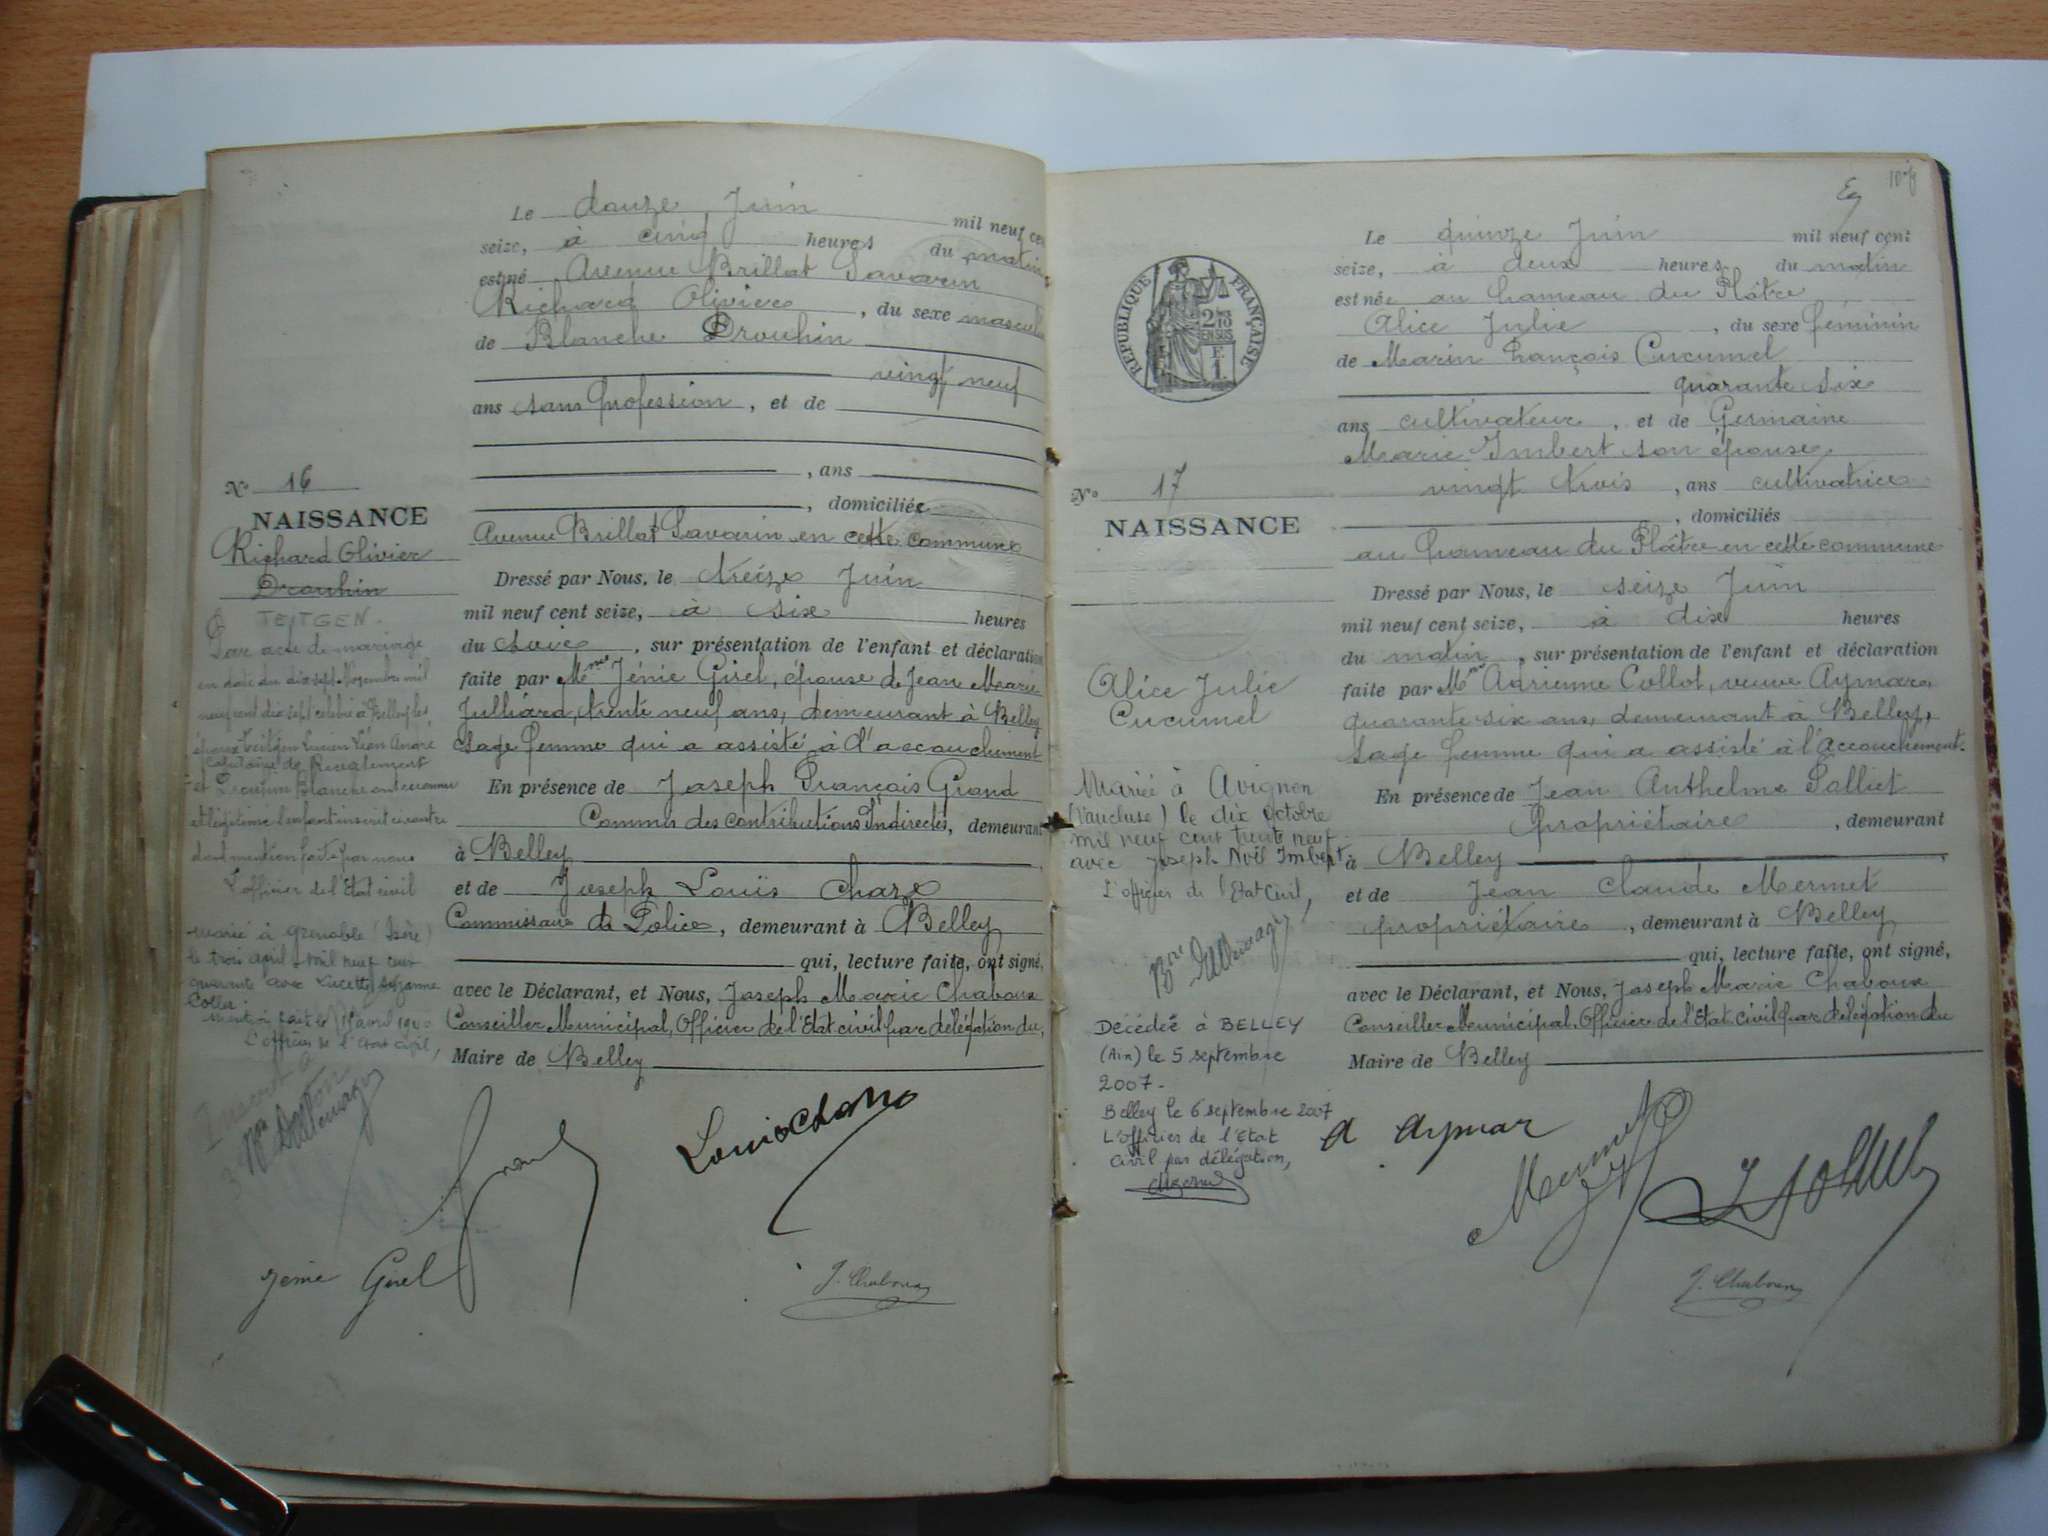 Le douze Juin mil neuf cen
seize, à cinq heures du matin
est né Avenue Brillat Savarin
Richard Olivier, du sexe mascul
de Blanche Drouhin
vingt neuf
ans sans profession, et de
, ans
, domiciliée
Avenue Brillat Savarin en cette commune
Dressé par Nous, le treize Juin
mil neuf cent seize, à six heures
du soir, sur présentation de l'enfant et déclaration
faite par Mme Jénie Girel, épouse de Jean Marie
Julliard, trente neuf ans, demeurant à Belley
Sage femme qui a assisté à l'accouchement
En présence de Joseph François Grand
Commis des contributions Indirectes, demeurant
à Belley
et de Joseph Louis
Commissaire de Police, demeurant à Belley
qui, lecture faite, ont signé,
avec le Déclarant, et Nous, Joseph Marie Chaboux
Conseiller Municipal, Officier de l'Etat civil par délégation du
Maire de Belley
No 16
NAISSANCE
Richard Olivier
Drouhin
TEITGEN.
Par acte de mariage
en date du dix sept Novembre mil
neuf cent dix sept célébré à Belley les
époux Teitgen Lucien Léon André
capitaine de Recrutement
et Drouhin Blanche ont reconnu
et légitimé l'enfant inscrit ci contre
dont mention faite par nous
L'officier de l'Etat civil
Marié à Grenoble (Isère)
le trois avril mil neuf cent
quarante avec Lucette Suzanne
Mention faite le avril
L'officier de l'Etat civil,
Grand
Jenie Girel
J. Chaboux
Le quinze Juin mil neuf cent
seize, à deux heures du matin
est née au hameau du Plâtre
Alice Julie, du sexe féminin
de Marin François Cucumel
quarante six
ans cultivateur, et de Germaine
Marie Imbert son épouse
vingt trois, ans cultivatrice
, domiciliés
au hameau du Plâtre en cette commune
Dressé par Nous, le seize Juin
mil neuf cent seize, à dix heures
du matin, sur présentation de l'enfant et déclaration
faite par Mme Adrienne Collot, veuve Aymar,
quarante six ans, demeurant à Belley,
Sage femme qui a assisté à l'accouchement.
En présence de Jean Anthelme
propriétaire, demeurant
à Belley
et de Jean Claude Mermet
propriétaire, demeurant à Belley
qui, lecture faite, ont signé,
avec le Déclarant, et Nous, Joseph Marie Chaboux
Conseiller Municipal, Officier de l'Etat civil par délégation du
Maire de Belley
REPUBLIQUE FRANÇAISE
2/10 EN SUS
F. 1.
No 17
NAISSANCE
Alice Julie
Cucumel
Mariée à Avignon
(Vaucluse) le dix Octobre
mil neuf cent trente neuf
avec Joseph Noël Imbert
L'officier de l'Etat Civil,
Décédée à BELLEY
(Ain) le 5 septembre
2007.
Belley le 6 septembre 2007
L'Officier de l'Etat
Civil par délégation,
A Aymar
Mermet
J. Chaboux